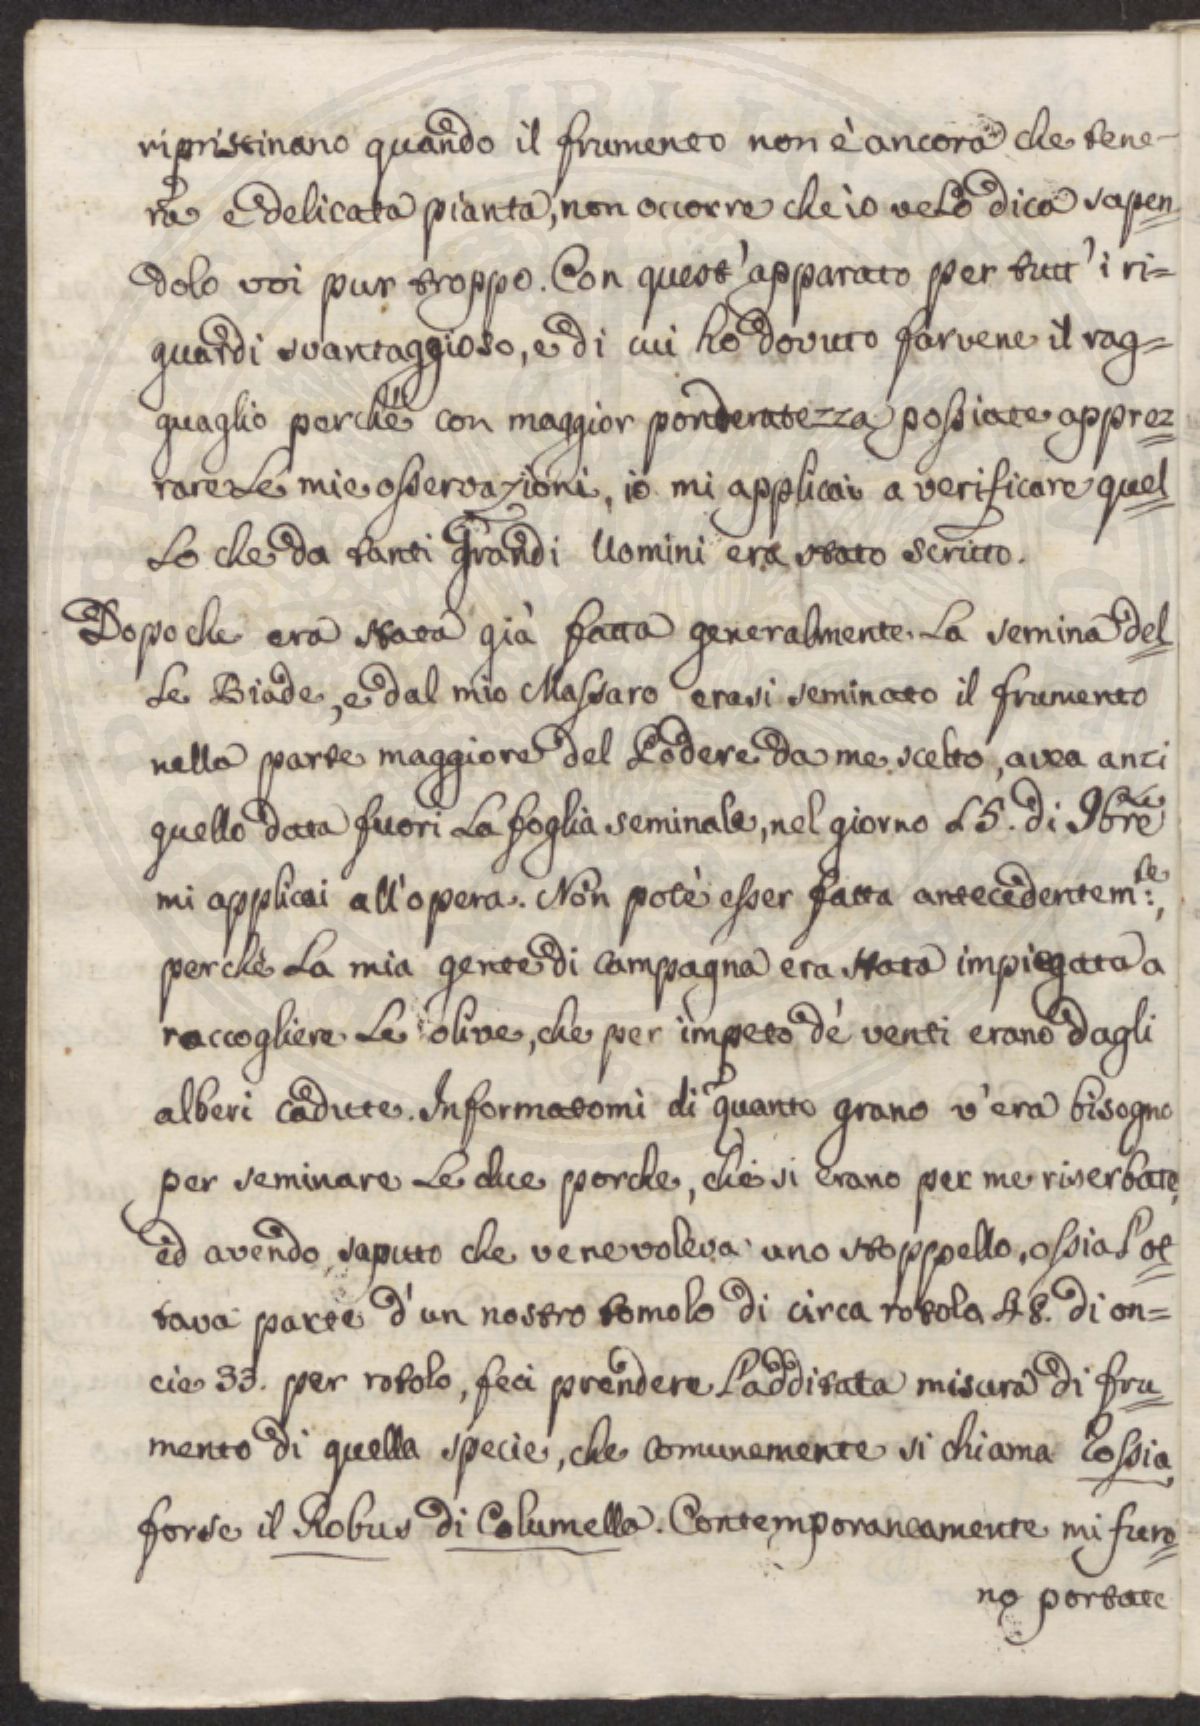 ripristinano quando il frumento non è ancora che tene-
ra e delicata pianta, non occorre che io ve lo dica sapen
dolo voi pur troppo. Con quest'apparato per tutt'i ri=
guardi svantaggioso, e di cui ho dovuto farvene il rag=
guaglio perchè con maggior ponderatezza possiate apprez
zare le mie osservazioni, io mi applicai a verificare quel
lo che da tanti Grandi Uomini era stato scritto.
Dopo che era stata già fatta generalmente la semina del
le Biade, e dal mio Massaro erasi seminato il frumento
nella parte maggiore del Podere da me scelto, avea anzi
quello data fuori la foglia seminale, nel giorno 15. di 9bre
mi applicai all'opera. Non potè esser fatta antecedentemte:,
perchè la mia gente di campagna era stata impiegata a
raccogliere le olive, che per impeto de' venti erano dagli
alberi cadute. Informatomi di quanto grano v'era bisogno
per seminare le due porche, che si erano per me riserbate,
ed avendo saputo che ve ne voleva uno stoppello, ossia l'ot
tava parte d'un nostro tomolo di circa rotola 48. di on=
cie 33. per rotolo, feci prendere l'additata misura di fru
mento di quella specie, che comunemente si chiama Rossia,
forse il Robus di Columella. Contemporaneamente mi furo
no portate